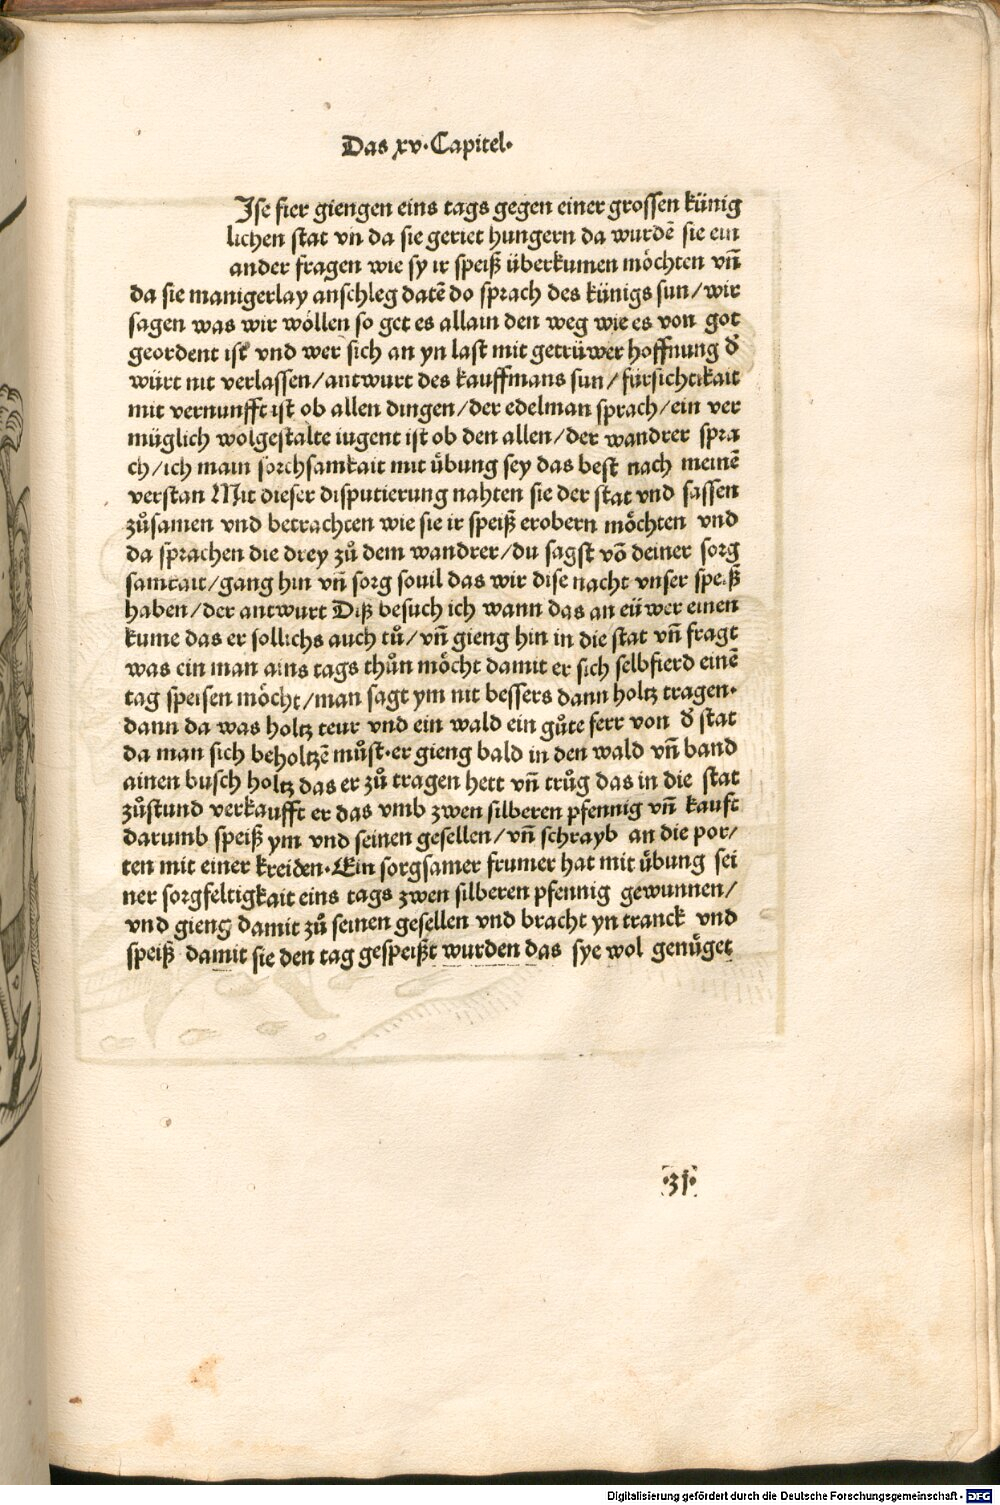 Das xv·Capitel·
Jse fier giengen eins tags gegen einer grossen künig
lichen stat vn̄ da sie geriet hungern da wurdē sie ein
ander fragen wie sy ir speiß überkumen möchten vn̄
da sie manigerlay anschleg datē do sprach des künigs sun/wir
sagen was wir wöllen so get es allain den weg wie es von got
geordent ist vnd wer sich an yn last mit getrüwer hoffnung d̄
würt nit verlassen/antwurt des kauffmans sun/fürsichtikait
mit vernunfft ist ob allen dingen/der edelman sprach/ein ver
müglich wolgestalte iugent ist ob den allen/der wandrer spra
ch/ich main sorchsamkait mit übung sey das best nach meinē
verstan Mit dieser disputierung nahten sie der stat vnd sassen
zůsamen vnd betrachten wie sie ir speiß erobern möchten vnd
da sprachen die drey zů dem wandrer/du sagst vō deiner sorg
samkait/gang hin vn̄ sorg souil das wir dise nacht vnser speiß
haben/der antwurt Diß besuch ich wann das an eüwer einen
kume das er sollichs auch tů/vn̄ gieng hin in die stat vn̄ fragt
was ein man ains tags thůn möcht damit er sich selbfierd einē
tag speisen möcht/man sagt ym nit bessers dann holtz tragen·
dann da was holtz teur vnd ein wald ein gůte ferr von d̄ stat
da man sich beholtzē můst·er gieng bald in den wald vn̄ band
ainen busch holtz das er zů tragen hett vn̄ trůg das in die stat
zůstund verkaufft er das vmb zwen silberen pfennig vn̄ kauft
darumb speiß ym vnd seinen gesellen/vn̄ schrayb an die por/
ten mit einer kreiden·Ein sorgsamer frumer hat mit übung sei
ner sorgfeltigkait eins tags zwen silberen pfennig gewunnen/
vnd gieng damit zů seinen gesellen vnd bracht yn tranck vnd
speiß damit sie den tag gespeißt wurden das sye wol genüget
·31·
Digitalisierung gefördert durch die Deutsche Forschungsgemeinschaft - DFG